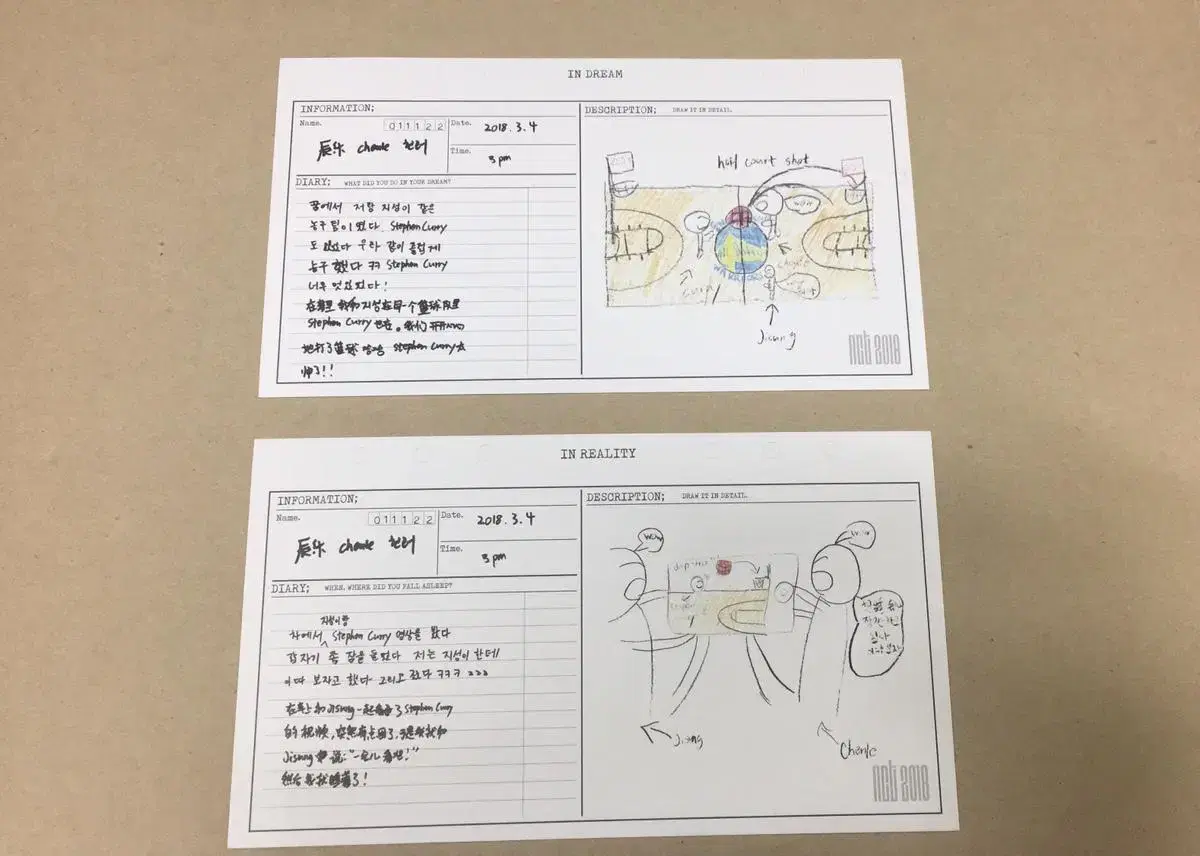 IN DREAM
INFORMATION;
Name.
011122
辰乐 chenle 천러
Date.
2018. 3. 4
Time.
3 pm
DIARY; WHAT DID YOU DO IN YOUR DREAM?
꿈에서 저랑 지성이 같은
농구 팀이 됐다. Stephen Curry
도 있었다 우리 같이 즐겁게
농구 했다 ㅋㅋ Stephen Curry
너무 멋있었다!
在梦里 我和지성在同一个篮球队里
Stephen Curry也在。我们开开心心
地打了篮球 哈哈 Stephen Curry太
帅了!!
DESCRIPTION; DRAW IT IN DETAIL.
half court shot
WOW
WARRIORS
Curry
Chenle
Jisung
nct 2018
IN REALITY
INFORMATION;
Name.
011122
辰乐 chenle 천러
Date.
2018. 3. 4
Time.
3 pm
DIARY; WHEN, WHERE DID YOU FALL ASLEEP?
지성이랑
차에서 Stephen Curry 영상을 봤다
갑자기 좀 잠을 들었다 저는 지성이한테
이따 보자고 했다 그리고 잤다 ㅋㅋㅋ zzz
在车上和Jisung一起看了Stephen Curry
的视频,突然有点困了,于是我就和
Jisung 说:"一会儿看吧!"
然后我就睡着了!
DESCRIPTION; DRAW IT IN DETAIL.
WOW
WOW
Jisung
Chenle
nct 2018